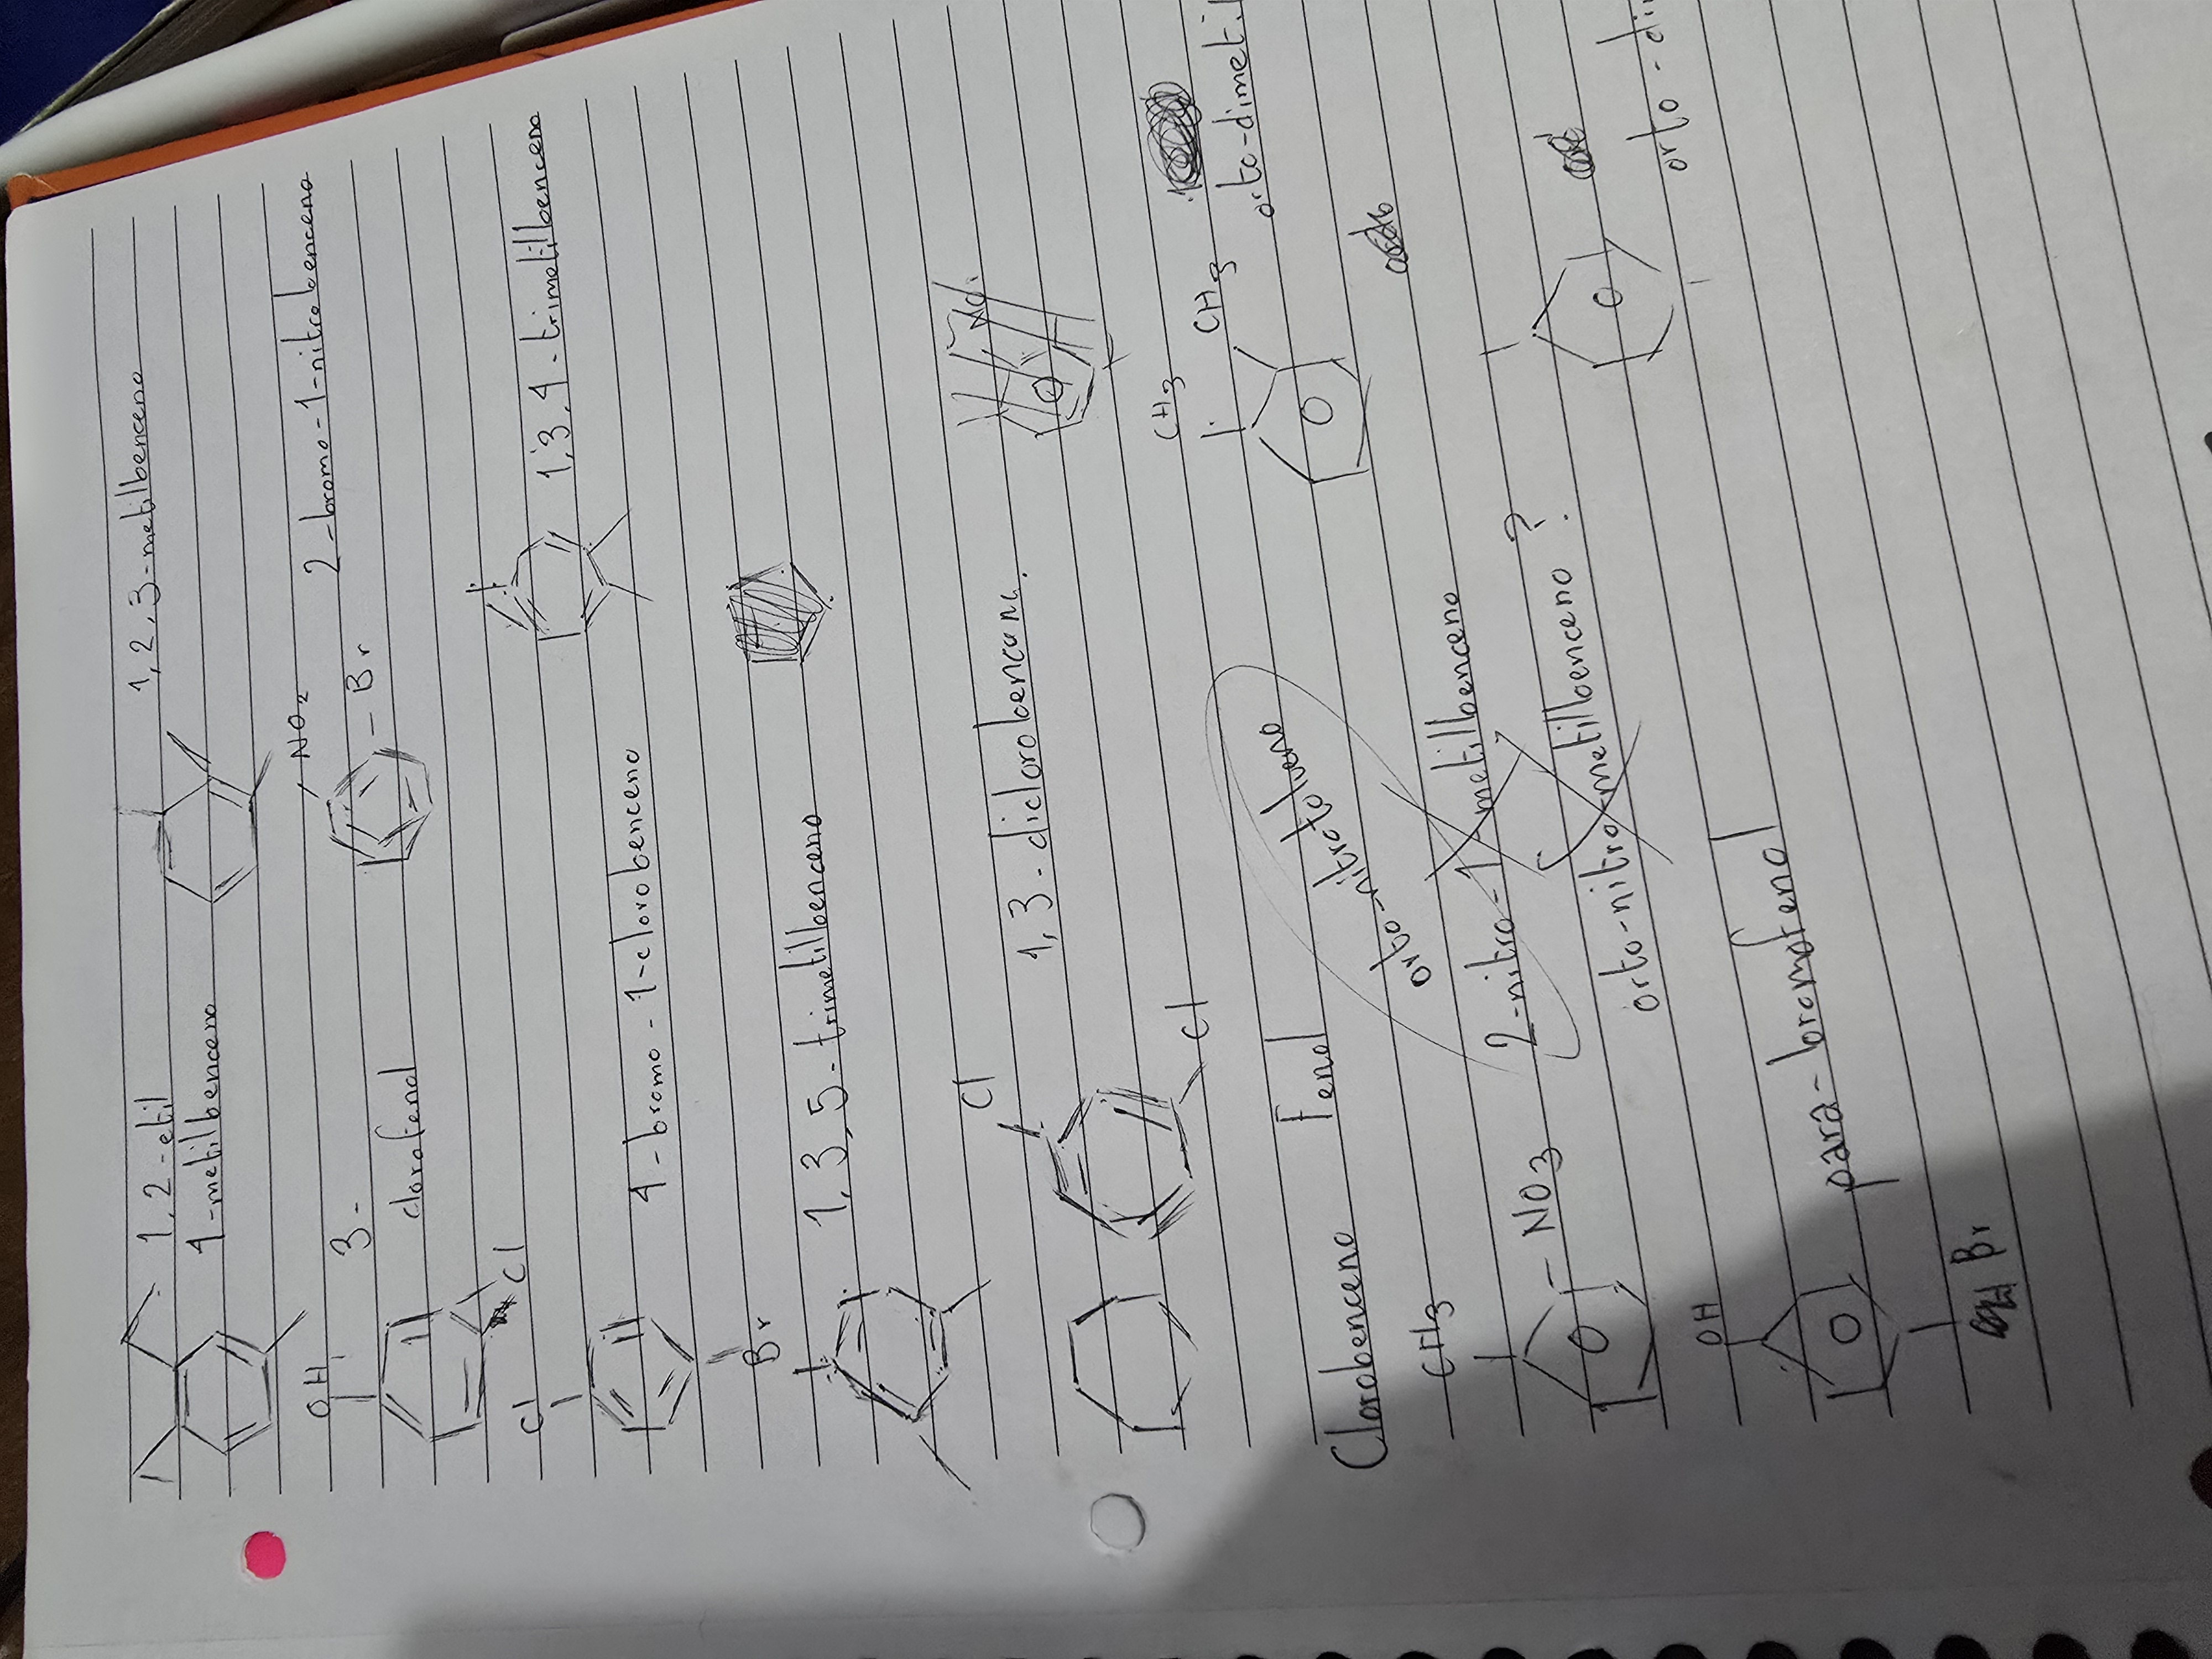 1,2-etil
4-metilbenceno
1,2,3-metilbenceno
OH
3-
clorofenol
Cl
NO2
Br
2-bromo-1-nitrobenceno
Cl
Br
4-bromo-1-clorobenceno
1,3,4-trimetilbenceno
1,3,5-trimetilbenceno
Cl
Cl
1,3-diclorobenceno.
Clorobenceno
Fenol
CH3
CH3
orto-dimetil
CH3
NO3
orto-nitrotolueno
2-nitro-1-metilbenceno
orto-nitro-metilbenceno ?
orto-di
OH
Br
para-bromofenol